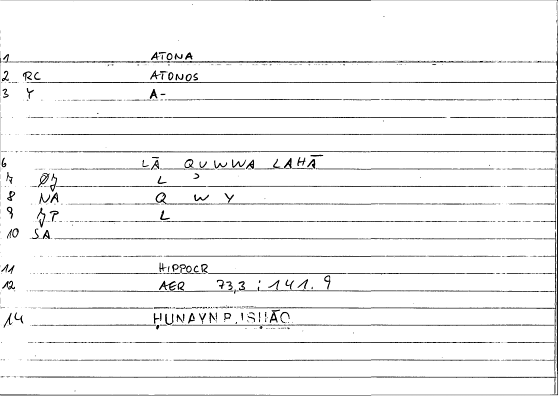 1 ATONA
2 RC ATONOS
3 Y A-
6 LĀ QUWWA LAHĀ
7 ØỊ L ʾ
8 NA Q W Y
9 ỊP L
10 SA
11 HIPPOCR
12 AER 73,3 ; 141. 9
14 ḤUNAYN B. ISḤĀQ